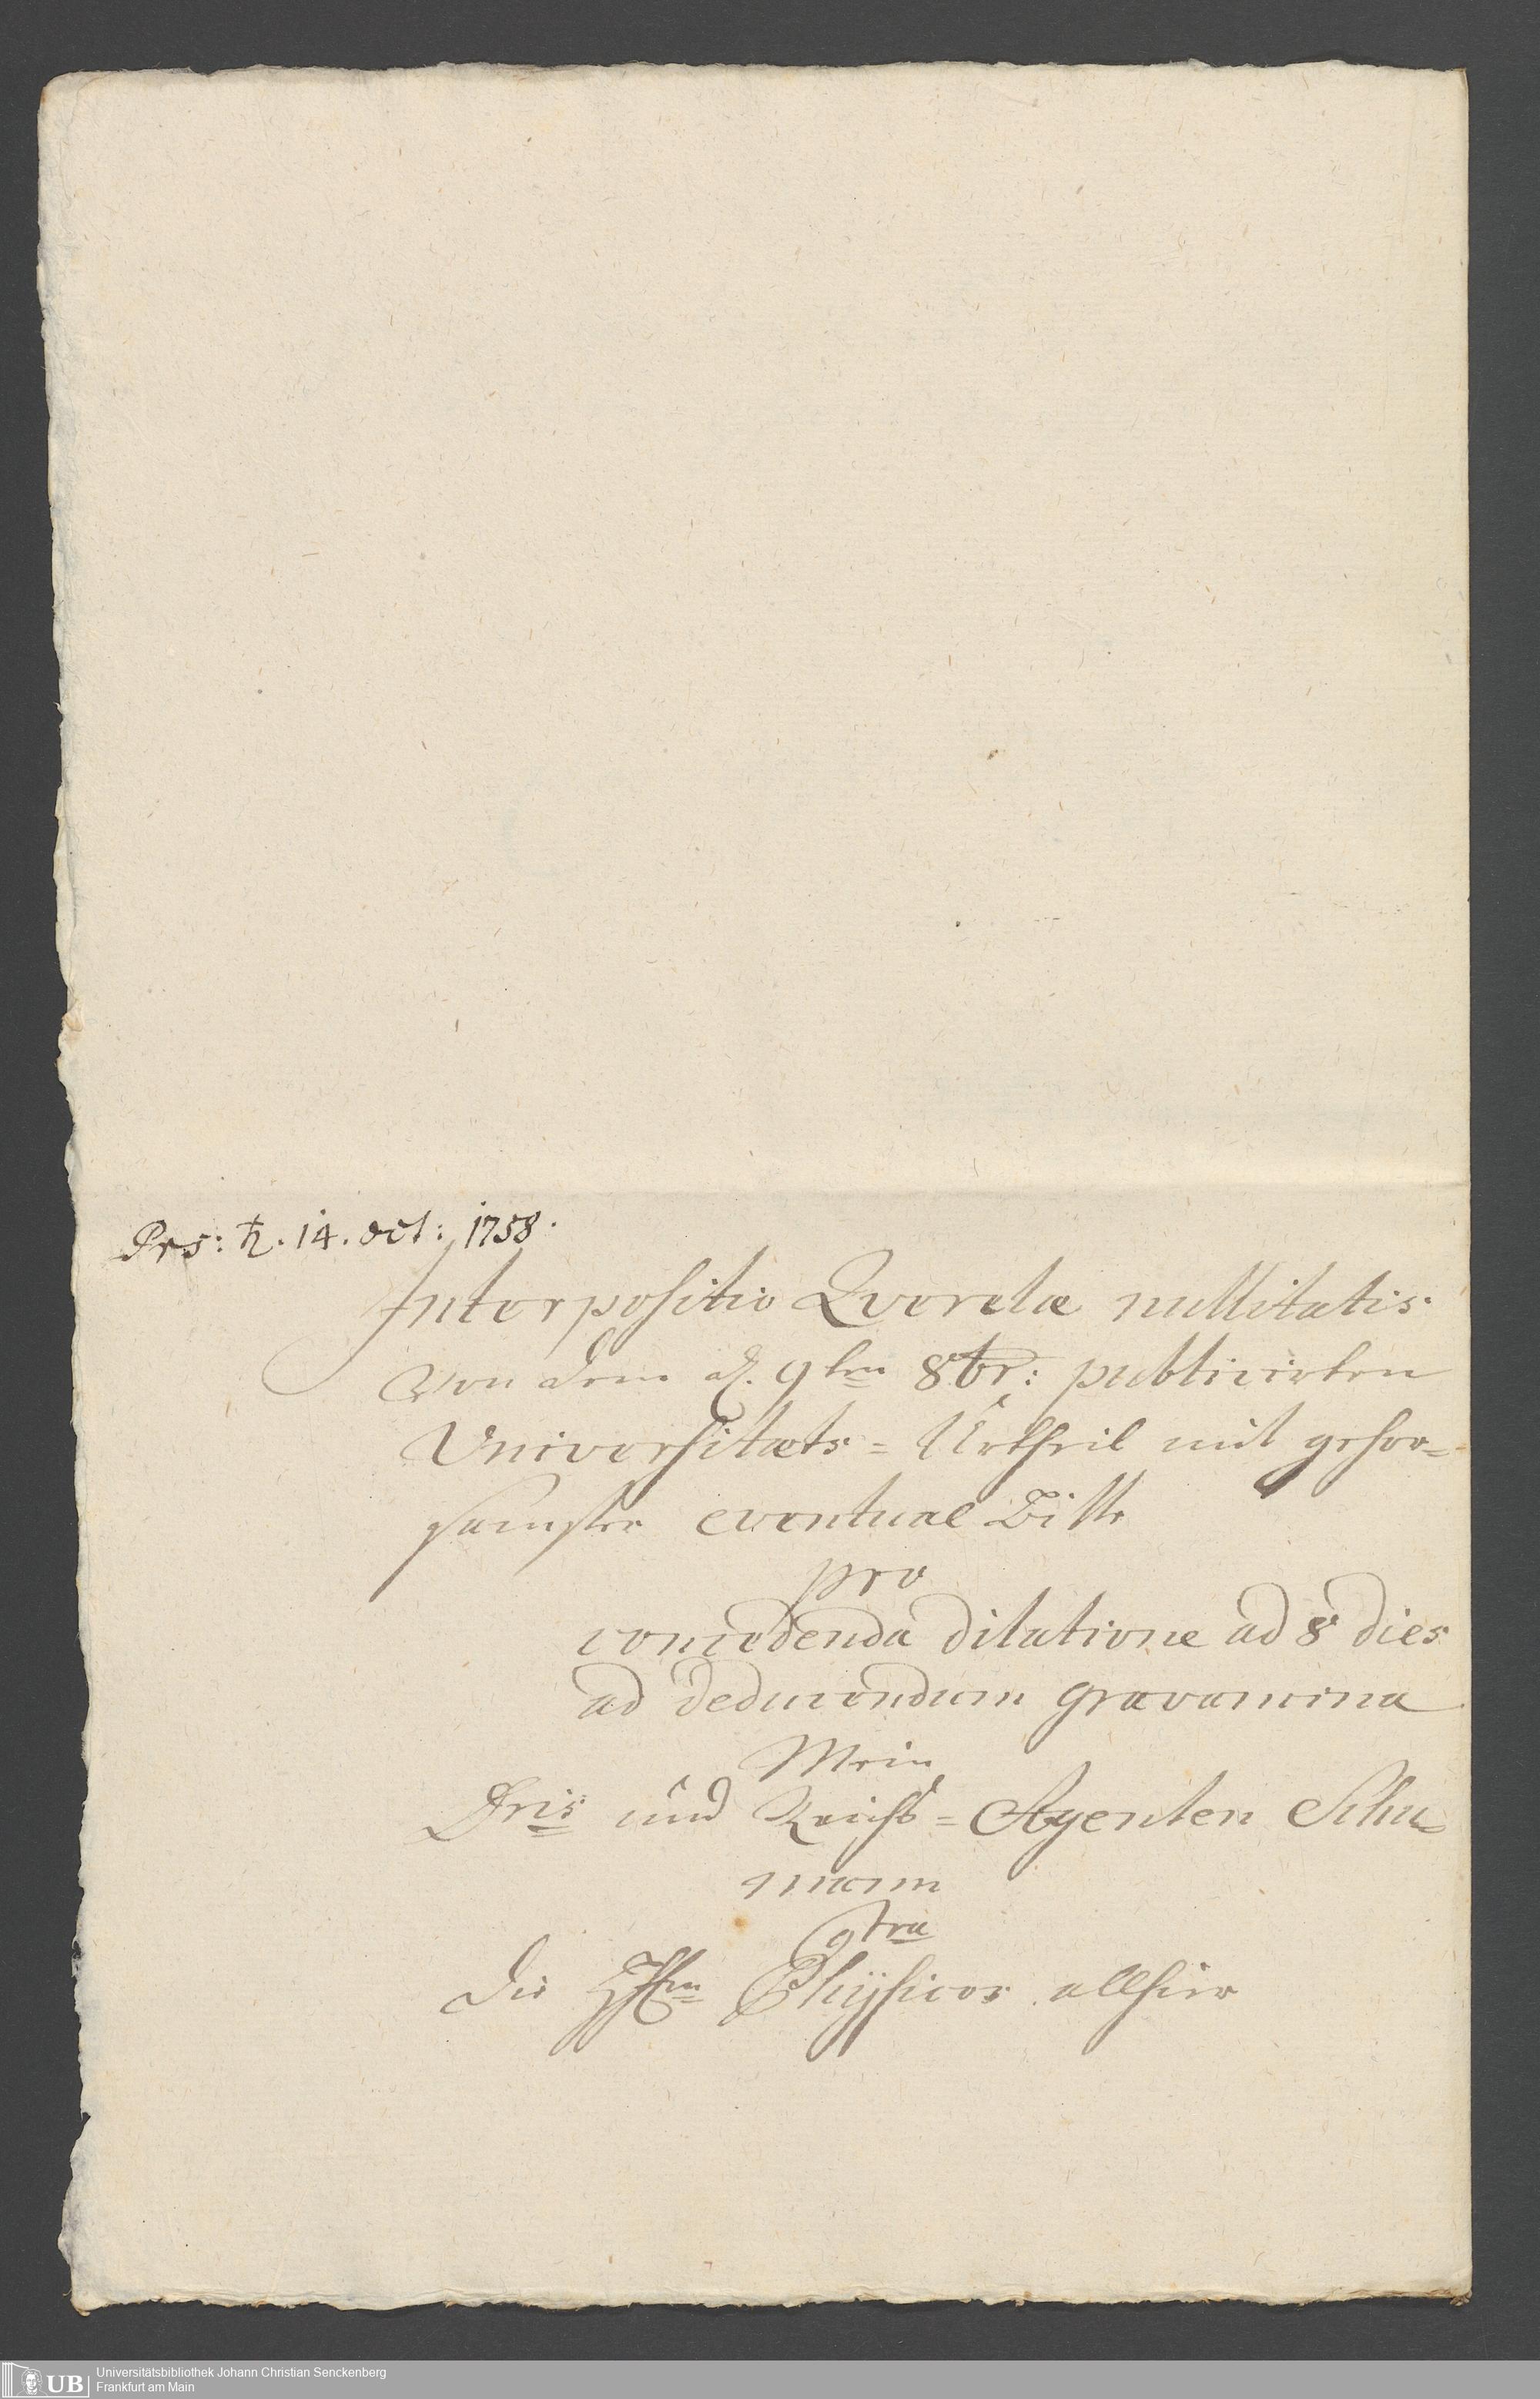 Prs: ♄. 14. oct: 1758.
Interpositio Querelae nullitatis
von dem d. 9ten 8br: publicirten
Universitaets=Urtheil mit gehor=
samster eventual Bitte
pro
concedenda dilatione ad 8 dies
ad deducendum gravamina
Mein
Dris und Reichs=Agenten Schu=
mann
Ctra
die HHen Physicos allhier
Universitätsbibliothek Johann Christian Senckenberg
Frankfurt am Main
UB